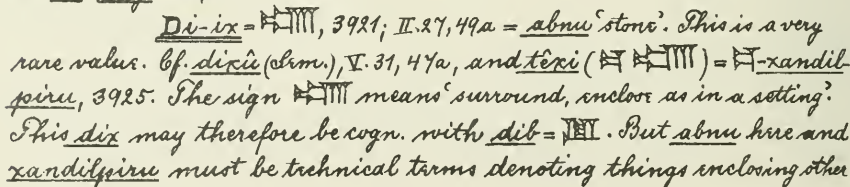 Di-ix = 𒁹, 3921; II. 27, 49a = abnu 'stone'. This is a very
rare value. Cf. dixû (Sem.), V. 31, 47a, and têxi ( ) = -xandil-
piru, 3925. The sign means 'surround, enclose as in a setting'.
This dix may therefore be cogn. with dib = . But abnu here and
xandilpiru must be technical terms denoting things enclosing other